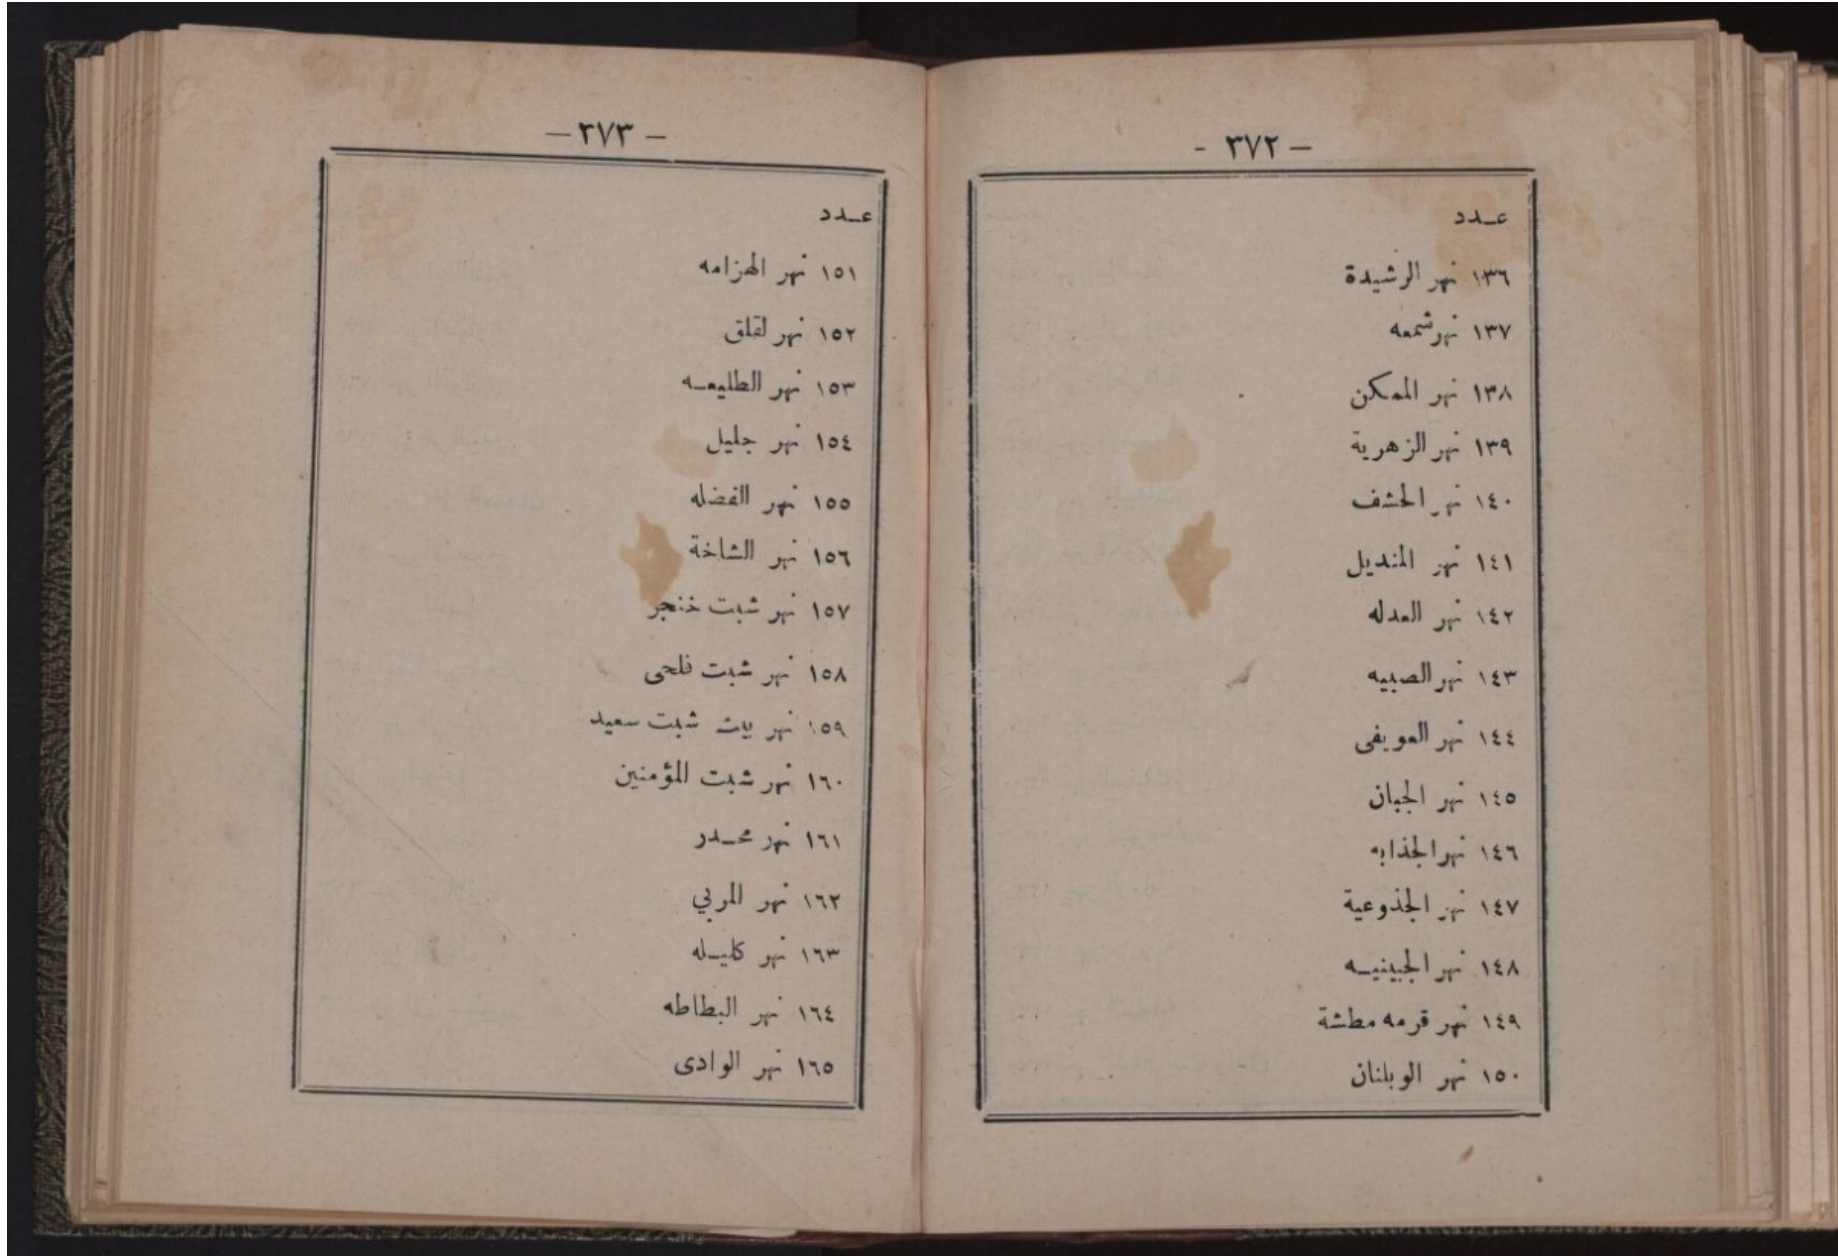 - ٣٧٢ —
عـدد
١٣٦ نهر الرشيدة
١٣٧ نهر شمعه
١٣٨ نهر الممكن
١٣٩ نهر الزهرية
١٤٠ نهر الحشف
١٤١ نهر المنديل
١٤٢ نهر العدله
١٤٣ نهر الصبيه
١٤٤ نهر العويفى
١٤٥ نهر الجبان
١٤٦ نهر الجذابه
١٤٧ نهر الجذوعية
١٤٨ نهر الجبينيـه
١٤٩ نهر قرمه مطشة
١٥٠ نهر الوبلنان
— ٣٧٣ —
عـدد
١٥١ نهر الهزامه
١٥٢ نهر لقلق
١٥٣ نهر الطليعـه
١٥٤ نهر جليل
١٥٥ نهر الفضله
١٥٦ نهر الشاخة
١٥٧ نهر شبت خنجر
١٥٨ نهر شبت فلحى
١٥٩ نهر بيت شبت سعيد
١٦٠ نهر شبت المؤمنين
١٦١ نهر محـدر
١٦٢ نهر المربي
١٦٣ نهر كليـله
١٦٤ نهر البطاطه
١٦٥ نهر الوادى